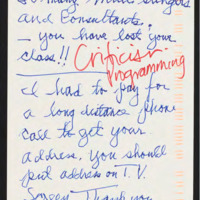 and Consultants.
- you have lost your
class!!
Criticism
Programming
I had to pay for
a long distance phone
call to get your
address. You should
put address on T.V.
Screen Thank you